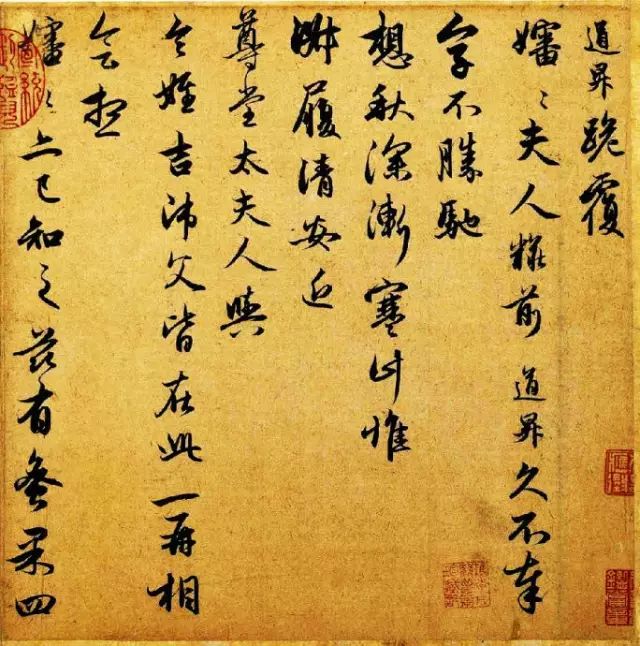 道昇跪覆
嬸嬸夫人粧前道昇久不奉
字不勝馳
想秋深漸寒計惟
淑履清安近
尊堂太夫人與
令姪吉師父皆在此一再相
會想
嬸嬸亦已知之茲有蜜果四